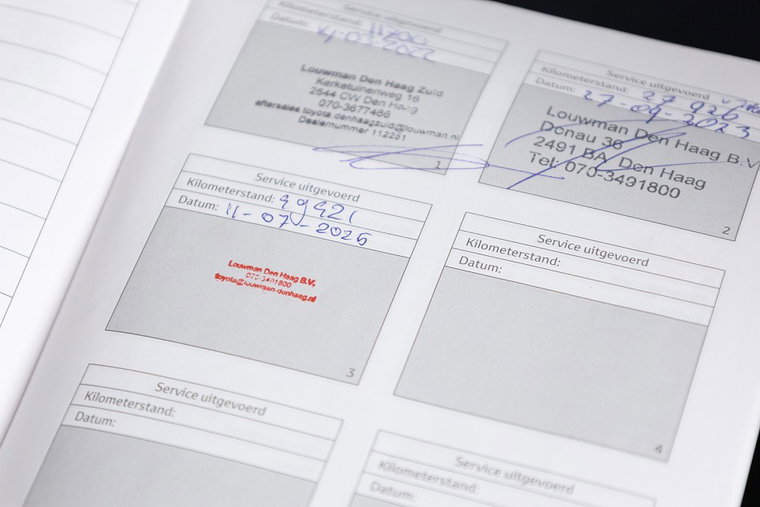 Service uitgevoerd
Kilometerstand:
Datum: 4-03-2022
Louwman Den Haag Zuid
Kerketuinenweg 16
2544 CW Den Haag
070-3677466
aftersales.toyota.denhaagzuid@louwman.nl
Dealernummer 112231
1
Service uitgevoerd
Kilometerstand: 27926
Datum: 27-09-2023
Louwman Den Haag B.V.
Donau 36
2491 BA Den Haag
Tel: 070-3491800
2
Service uitgevoerd
Kilometerstand: 49421
Datum: 11-07-2025
Louwman Den Haag B.V.
070-3491800
toyota@louwman-denhaag.nl
3
Service uitgevoerd
Kilometerstand:
Datum:
4
Service uitgevoerd
Kilometerstand:
Datum:
Service uitgevoerd
Kilometerstand:
Datum: